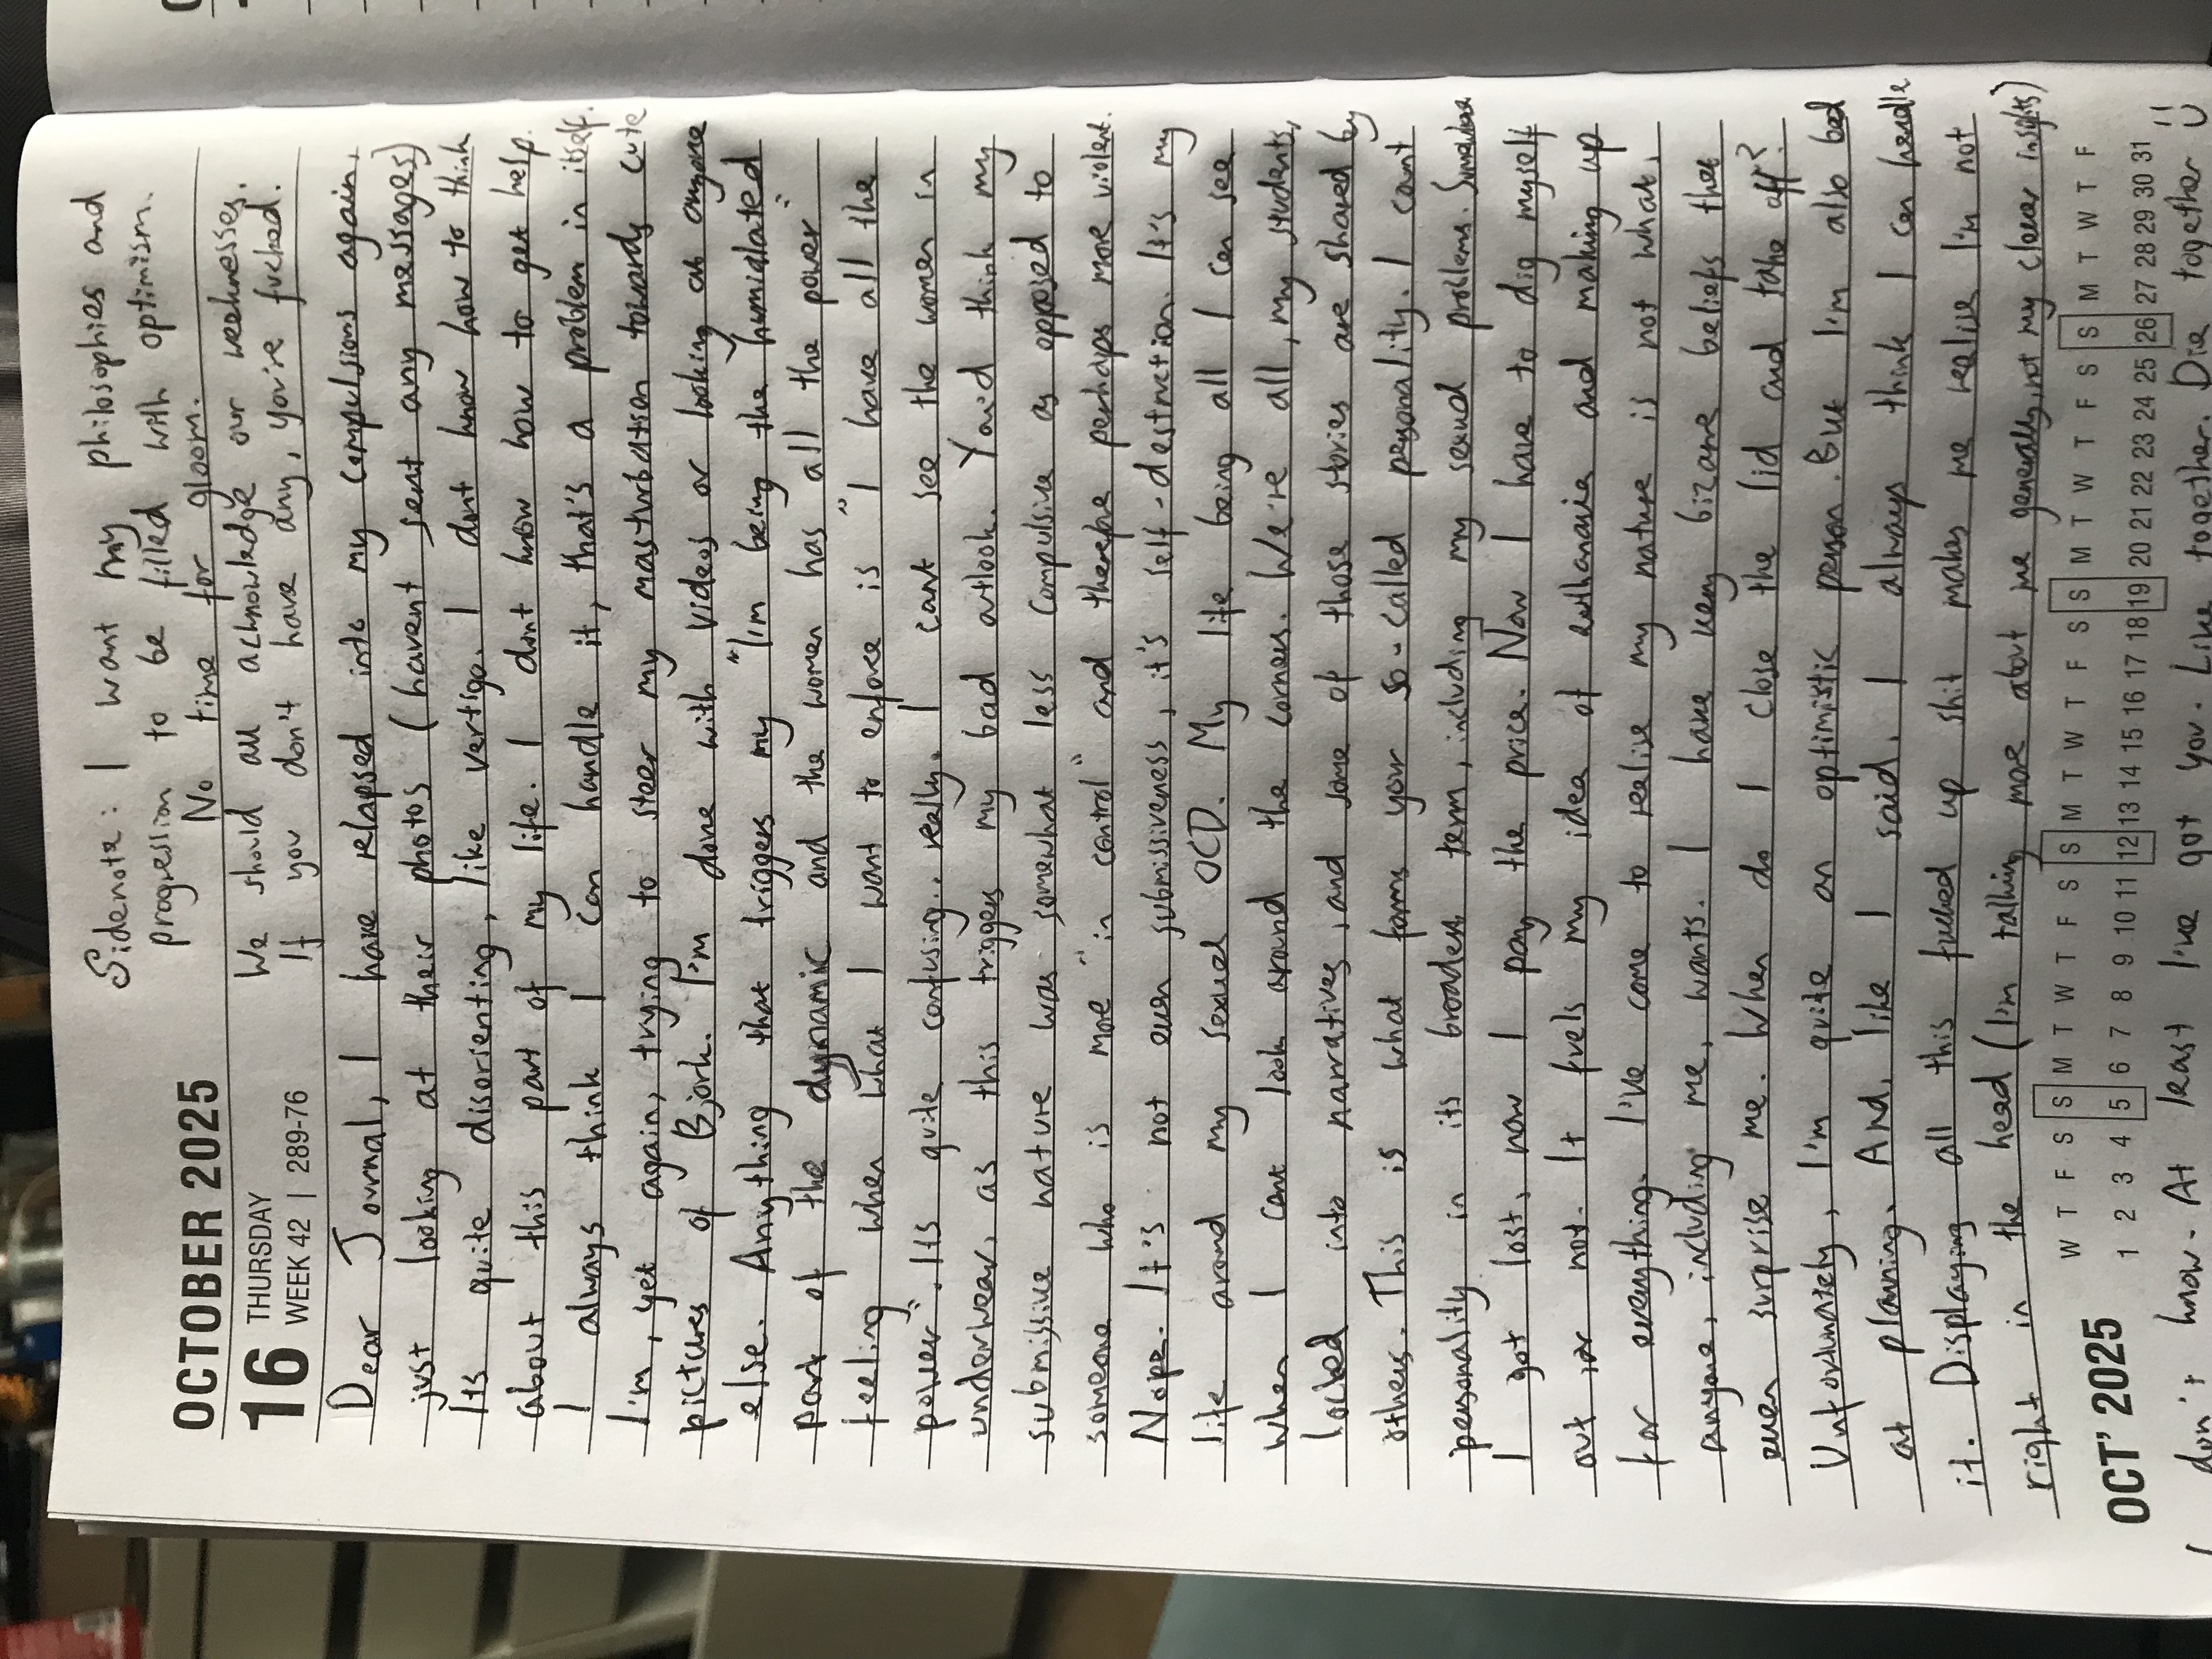 Sidenote: I want my philosophies and
progression to be filled with optimism.
No time for gloom.
We should all acknowledge our weeknesses.
If you don't have any, you're fucked.
OCTOBER 2025
16 THURSDAY
WEEK 42 | 289-76
Dear Journal, I have relapsed into my compulsions again,
just looking at their photos (havent sent any messages)
Its quite disorienting, like vertigo. I dont know how to think
about this part of my life. I dont know how to get help.
I always think I can handle it, that's a problem in itself.
I'm, yet again, trying to steer my masturbation towards cute
pictures of Bjork. I'm done with videos or looking at anyone
else. Anything that triggers my "I'm being the humialated
part of the dynamic and the women has all the power"
feeling when what I want to enforce is "I have all the
power". Its quite confusing... really. I cant see the women in
underwear, as this triggers my bad outlook. You'd think my
submissive nature was somewhat less compulsive as opposed to
someone who is more "in control" and therefore perhaps more violent.
Nope. It's not even submissiveness, it's self-destruction. It's my
life around my sexual OCD. My life being all I can see
when I cant look around the corners. We're all, my students,
locked into narratives, and some of those stories are shared by
others. This is what forms your so-called personality. I cant
personality in its broadest term, including my sexual problems. Somewhere
I got lost, now I pay the price. Now I have to dig myself
out or not. It fuels my idea of euthanasia and making up
for everything. I've come to realise my nature is not what
anyone, including me, wants. I have very bizarre beliefs that
even surprise me. When do I close the lid and take off?
Unfortunately, I'm quite an optimistic person. But I'm also bad
at planning. And, like I said, I always think I can handle
it. Displaying all this fucked up shit makes me realise I'm not
right in the head (I'm talking more about me generally, not my clever insights)
OCT' 2025
W T F S S M T W T F S S M T W T F S S M T W T F S S M T W T F
1 2 3 4 5 6 7 8 9 10 11 12 13 14 15 16 17 18 19 20 21 22 23 24 25 26 27 28 29 30 31
I don't know. At least I've got you. Live together. Die together :)